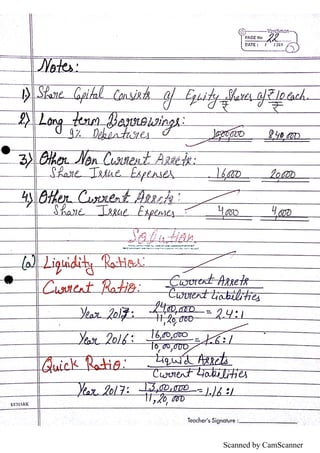 Vardhman
PAGE NO. 22
DATE: / /201
Notes:
1) Share Capital Consists of Equity Shares of ₹10 each.
2) Long term Borrowings: ₹ ₹
9% Debentures 10,00,000 8,40,000
3) Other Non Current Assets:
Share Issue Expenses 16,000 20,000
4) Other Current Assets:
Share Issue Expenses 4,000 4,000
Solution
(a) Liquidity Ratios:
Current Ratio: Current Assets
Current Liabilities
Year 2017: 24,00,000 = 2.4:1
11,20,000
Year 2016: 16,00,000 = 1.6:1
10,00,000
Quick Ratio: Liquid Assets
Current Liabilities
Year 2017: 13,00,000 = 1.16:1
11,20,000
REMARK
Teacher's Signature :
Scanned by CamScanner